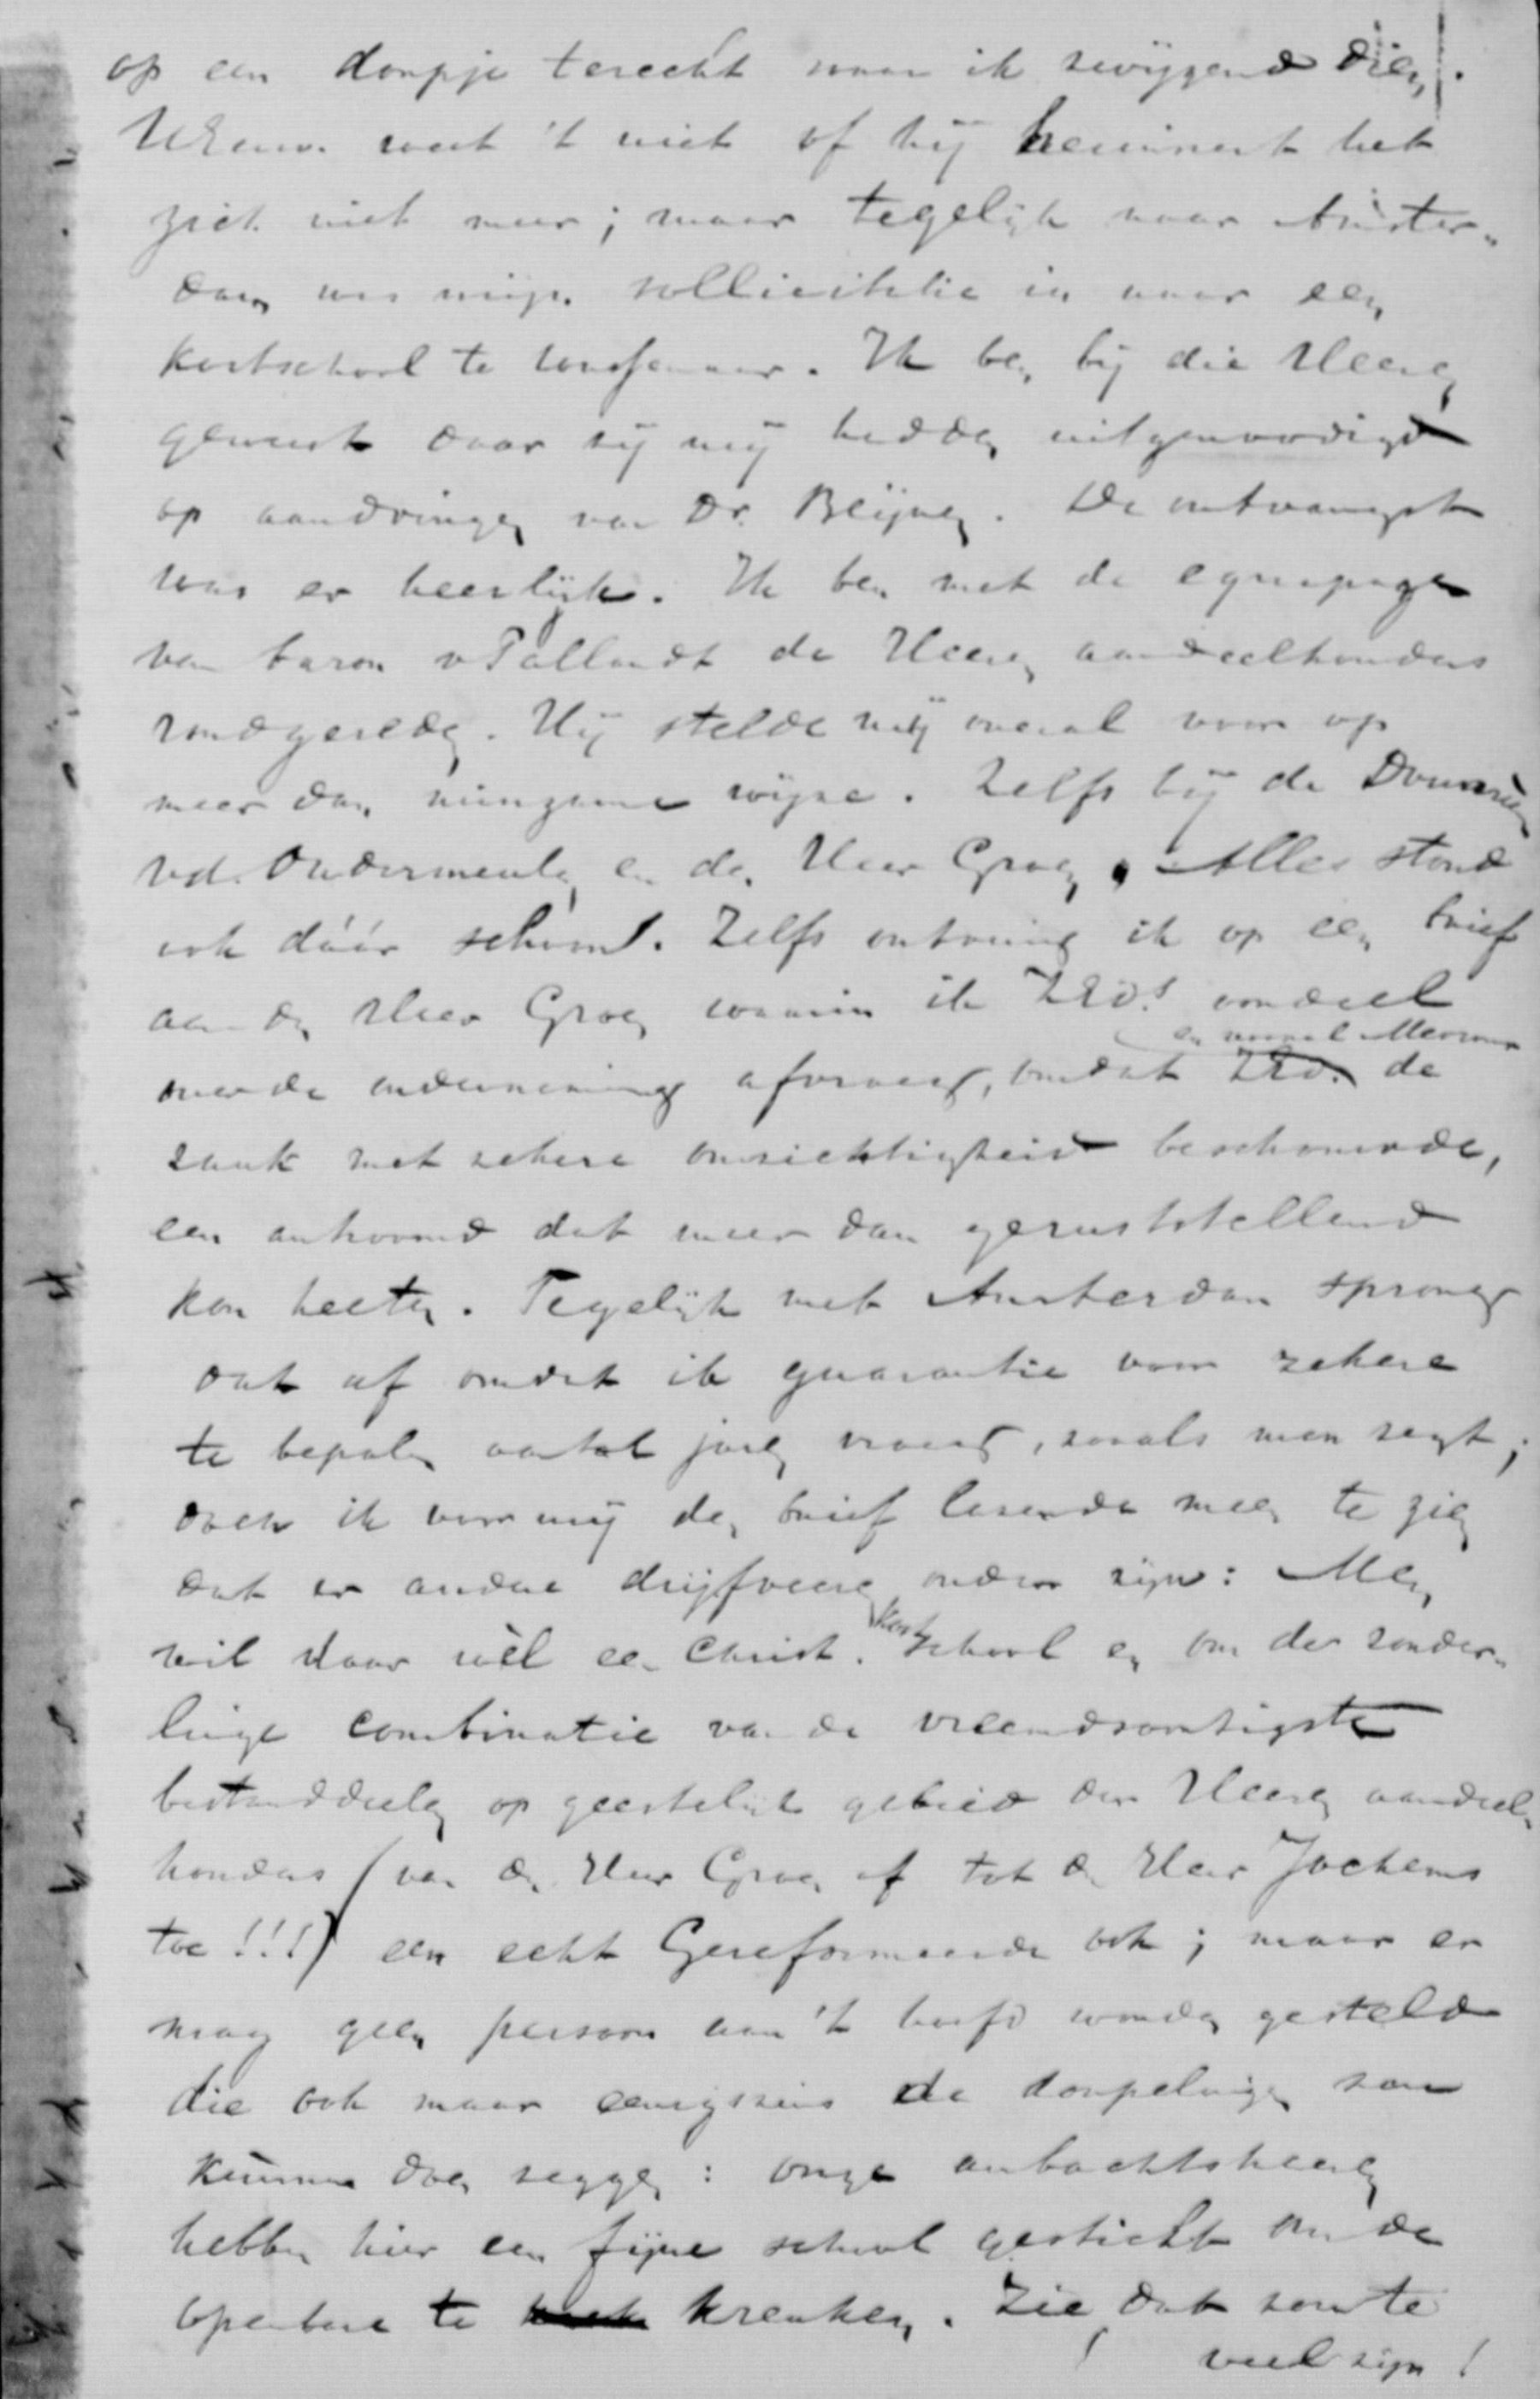 op een dorpje terecht waar ik zwijgend dien.
UEerw. weet 't niet of hij herinnert het
zich niet meer; maar tegelijk naar Amster-
dam was mijn sollicitatie in naar een
kostschool te Wassenaar. Ik ben bij die Heeren
geweest daar zij mij hadden uitgenoodigd
op aandringen van Dr. Beijnen. De ontvangst
was er heerlijk. Ik ben met de equipage
van baron v Pallandt de Heeren aandeelhouders
rondgereden. Hij stelde mij overal voor op
meer dan minzame wijze. Zelfs bij de Douairière
vd. Oudermeulen en den Heer Groen. Alles stond
ook dáár schoon!. Zelfs ontving ik op een brief
aan den Heer Groen waarin ik ZEd.s oordeel
en vooral Mevrouw
over de onderneming afvroeg, omdat ZEd. de
zaak met zekere omzichtigheid beschouwde,
een antwoord dat meer dan geruststellend
kon heeten. Tegelijk met Amsterdam sprong
dat af omdat ik guarantie voor zekere
te bepalen aantal jaren vroeg, zooals men zegt;
doch ik voor mij den brief lezende meen te zien
dat er andere drijfveeren onder zijn: Men
wil daar wèl een Christ. kostschool en om der zonder-
linge combinatie van de vreemdsoortigste
bestanddeelen op geestelijk gebied der Heeren aandeel-
houders (van den Heer Groen af tot den Heer Jochems
toe!!!) een echt Gereformeerde ook; maar er
mag geen persoon aan 't hoofd worden gesteld
die ook maar eenigszins de dorpelingen zou
kunnen doen zeggen: onze ambachtsheeren
hebben hier een fijne school gesticht om de
openbare te krenken. Zie, dat zou te
veel zijn!